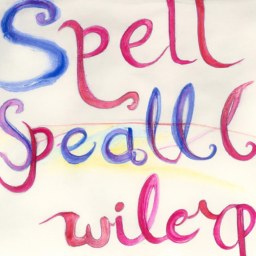 Spell
Speall
wilerp